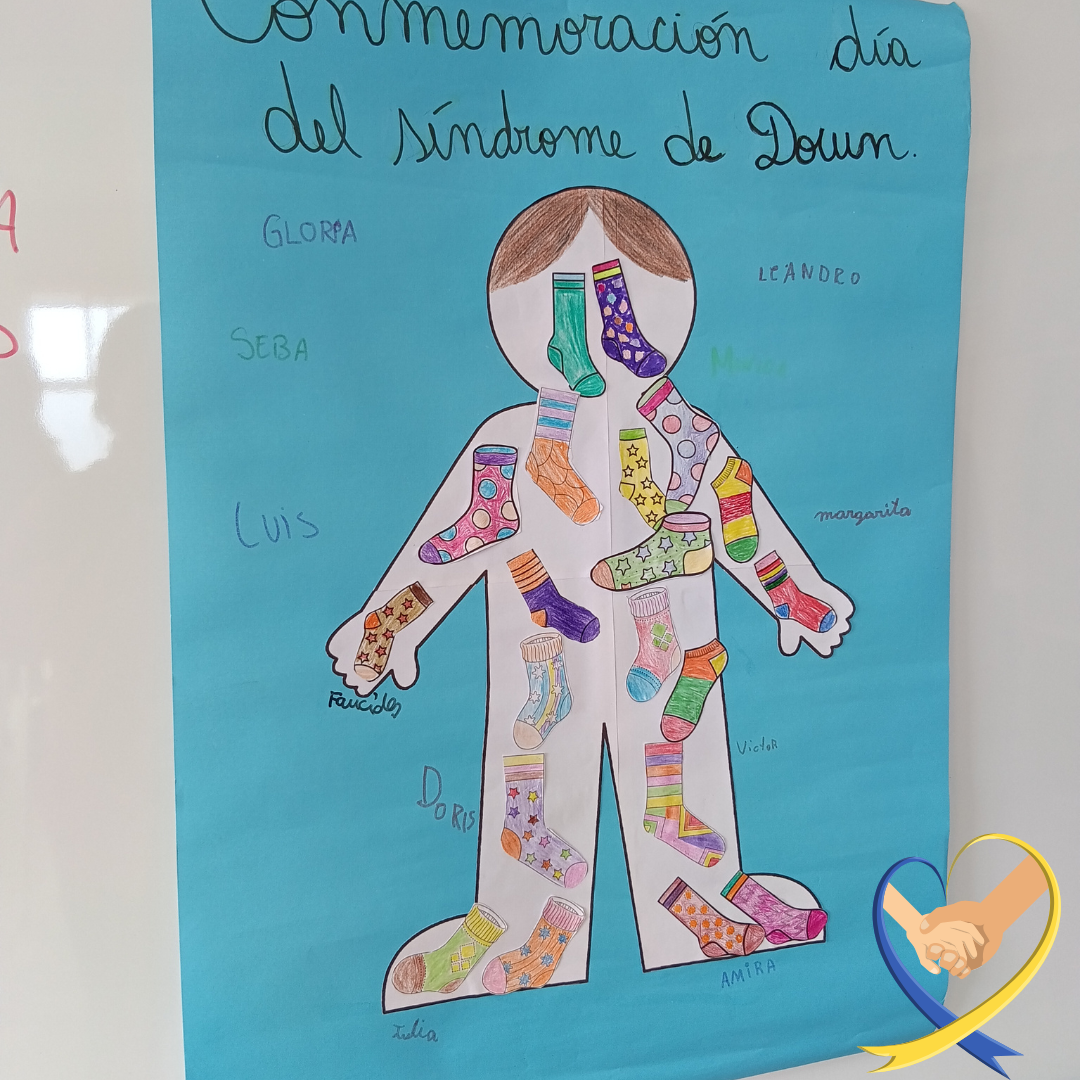 Conmemoración día
del síndrome de Down.
GLORIA
LEANDRO
SEBA
LUIS
margarita
Faucides
Victor
DORIS
AMIRA
Julia
A